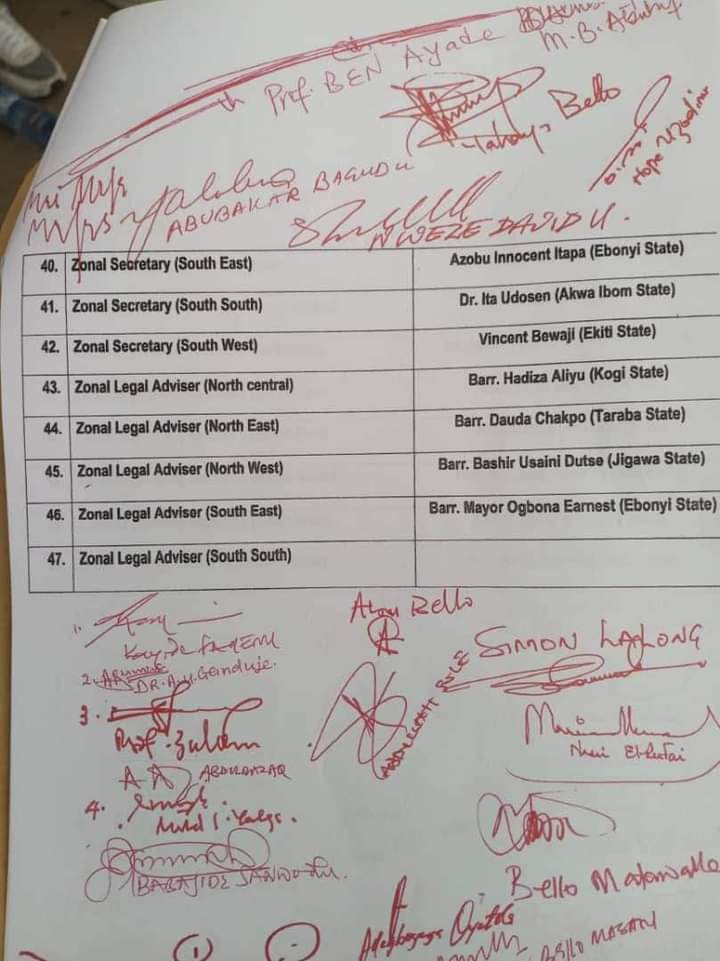 Prof. BEN Ayade
M.B. Abubakar
Bello
Hope Uzodinma
ABUBAKAR BAGUDU
NWEZE DAVID U.
40. Zonal Secretary (South East) Azobu Innocent Itapa (Ebonyi State)
41. Zonal Secretary (South South) Dr. Ita Udosen (Akwa Ibom State)
42. Zonal Secretary (South West) Vincent Bewaji (Ekiti State)
43. Zonal Legal Adviser (North central) Barr. Hadiza Aliyu (Kogi State)
44. Zonal Legal Adviser (North East) Barr. Dauda Chakpo (Taraba State)
45. Zonal Legal Adviser (North West) Barr. Bashir Usaini Dutse (Jigawa State)
46. Zonal Legal Adviser (South East) Barr. Mayor Ogbona Earnest (Ebonyi State)
47. Zonal Legal Adviser (South South)
1.
Kayode FAYEMI
Bello
SIMON LALONG
2.
DR. A.U. Ganduje.
3.
Prof. Zulum
Nasir El-Rufai
AA ABDULRAZAQ
4.
BABAJIDE SANWOOLU.
Bello Matawalle
Adegboyega Oyetola
BELLO MASARI